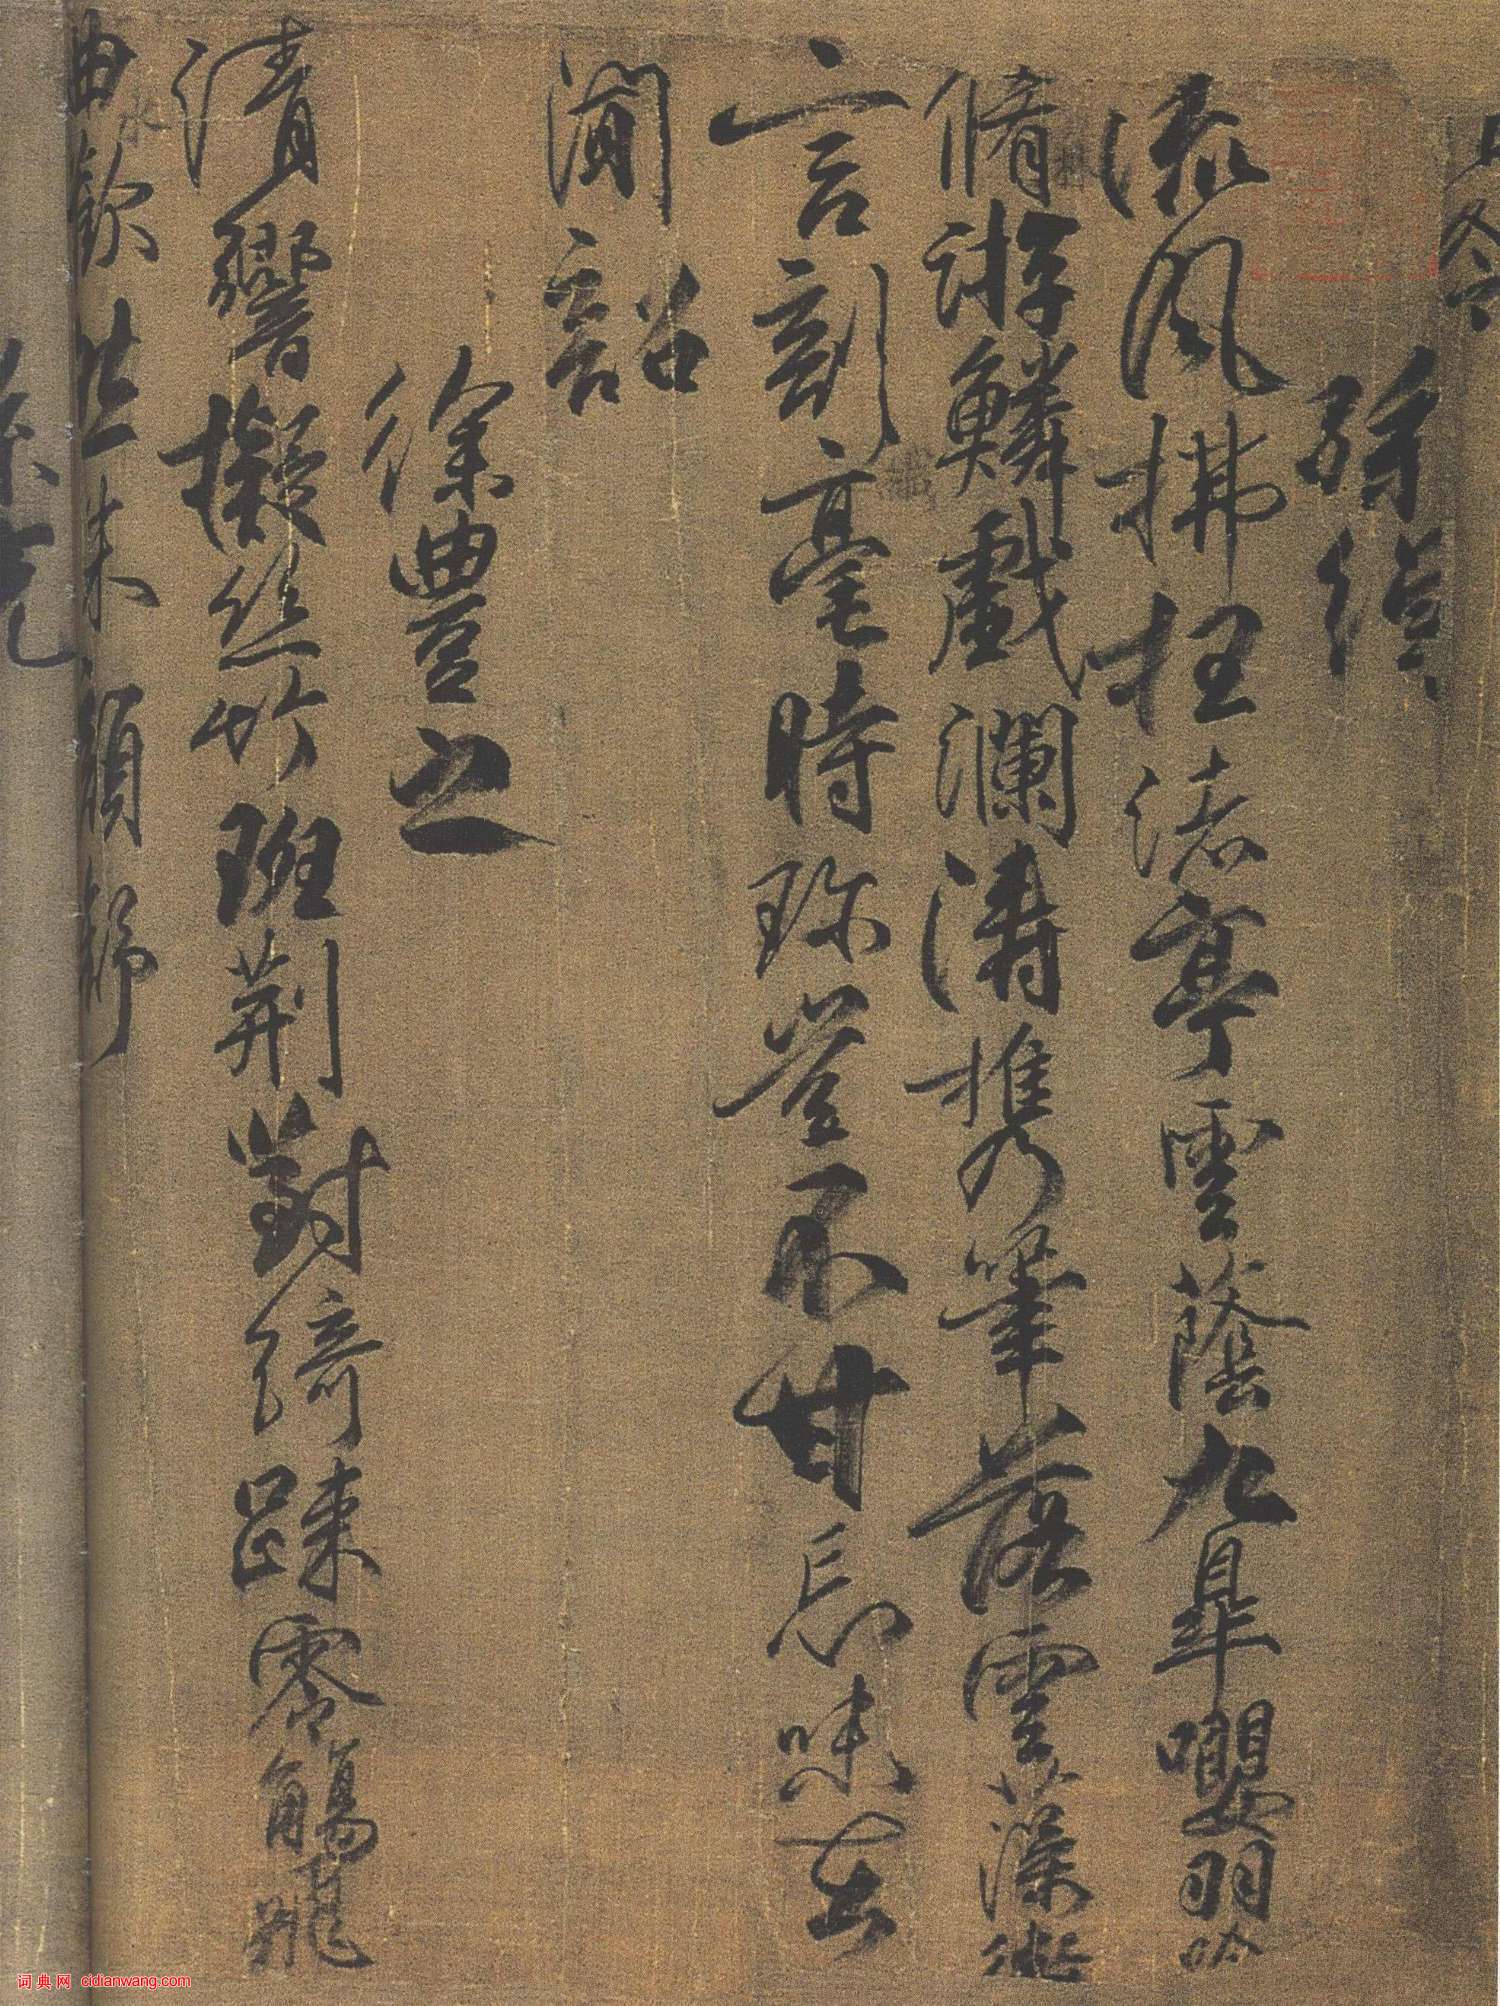 孫綽
流風拂枉渚亭雲蔭九皋嚶羽吟
脩游鱗戲瀾濤携筆落雲藻微
言剖纖毫時珍豈不甘忘味在
聞韶
徐豐之
清響擬絲竹班荊對綺疎零觴飛
曲水歡然朱顏舒
词典网 cidianwang.com